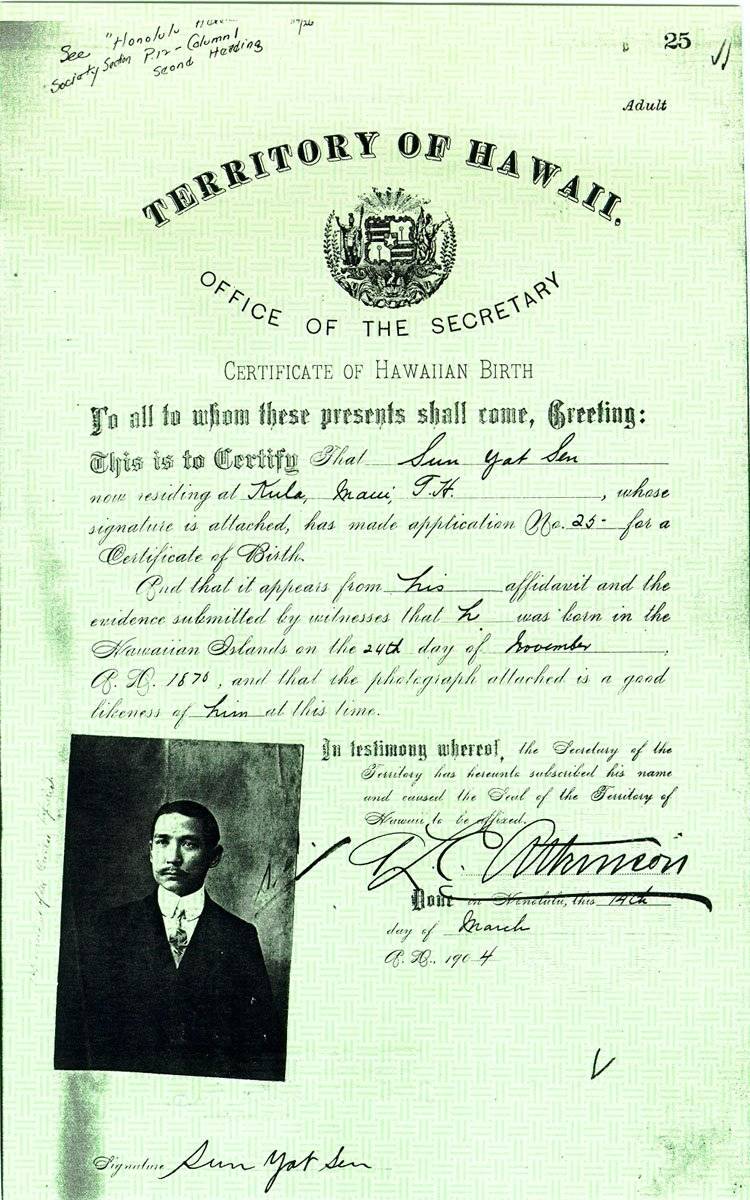 See "Honolulu
Society Section P.12 - Column 1
Second Heading
25
Adult
TERRITORY OF HAWAII.
OFFICE OF THE SECRETARY
CERTIFICATE OF HAWAIIAN BIRTH
To all to whom these presents shall come, Greeting:
This is to Certify That Sun Yat Sen
now residing at Kula, Maui, T.H. , whose
signature is attached, has made application No. 25- for a
Certificate of Birth.
And that it appears from his affidavit and the
evidence submitted by witnesses that h was born in the
Hawaiian Islands on the 24th day of November ,
A.D. 1870, and that the photograph attached is a good
likeness of him at this time.
In testimony whereof, the Secretary of the
Territory has hereunto subscribed his name
and caused the Seal of the Territory of
Hawaii, to be affixed.
A.L.C. Atkinson
Done in Honolulu, this 14th
day of March
A.D., 1904
Signature Sun Yat Sen